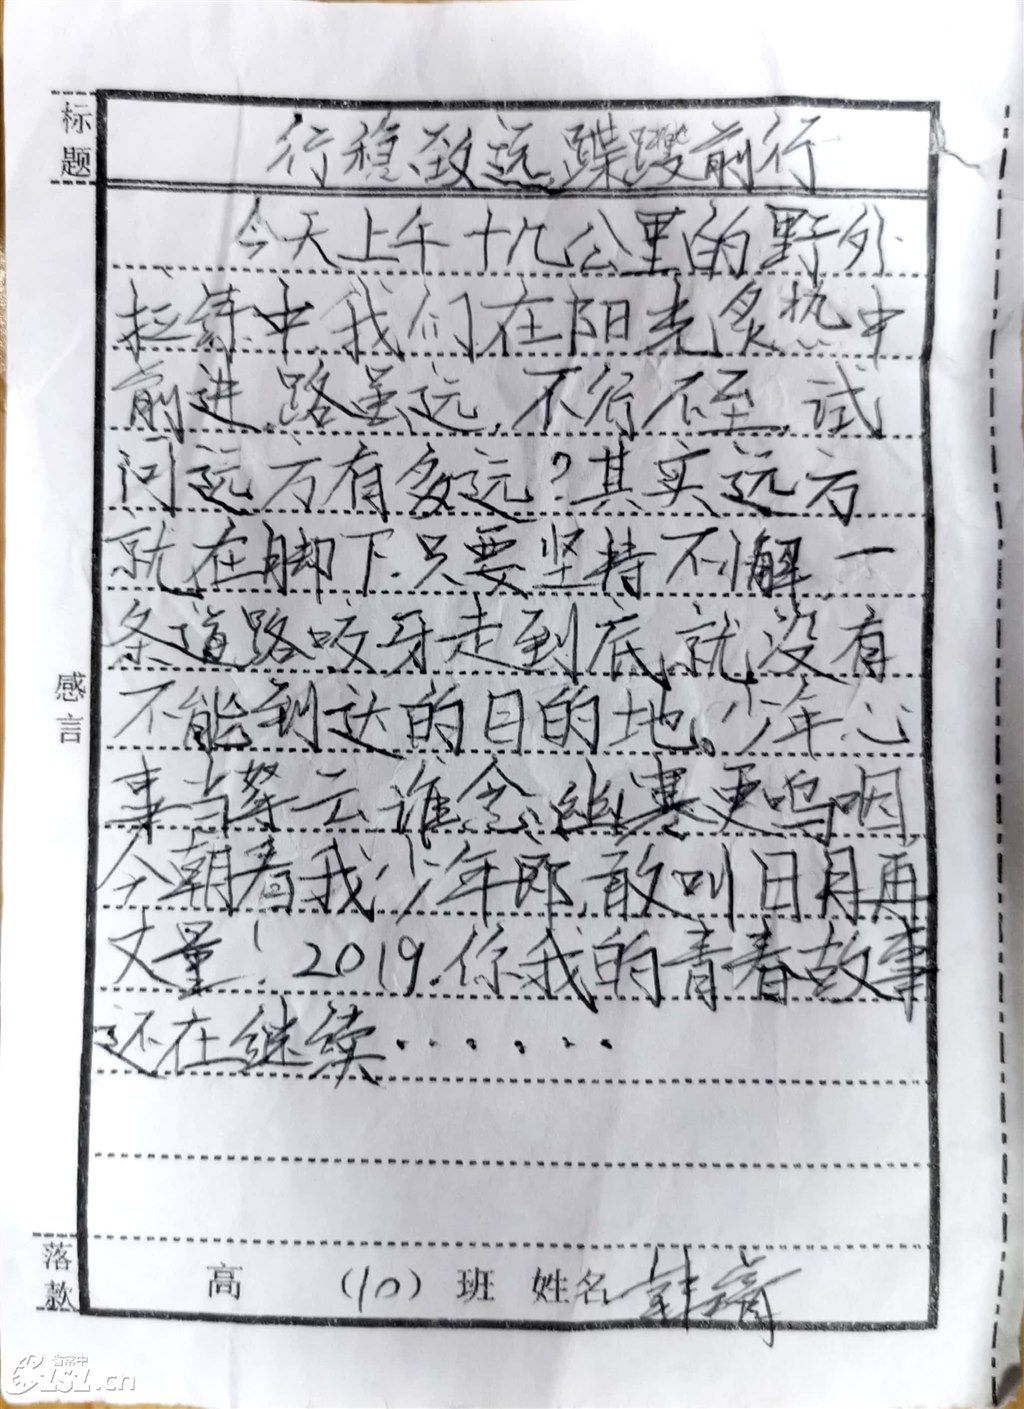 标题
行稳致远,蹀躞前行
今天上午十九公里的野外
拉练中,我们在阳光炙热中
前进,路虽远,不行不至,试
问远方有多远?其实远方
就在脚下.只要坚持不懈,一
条道路咬牙走到底,就没有
不能到达的目的地。少年心
事当拏云,谁念幽寒更呜咽
今朝看我少年郎,敢叫日月再
丈量!2019.你我的青春故事
还在继续.......
感言
落款
高 (10) 班 姓名
省常中
CZ1Z1.cn